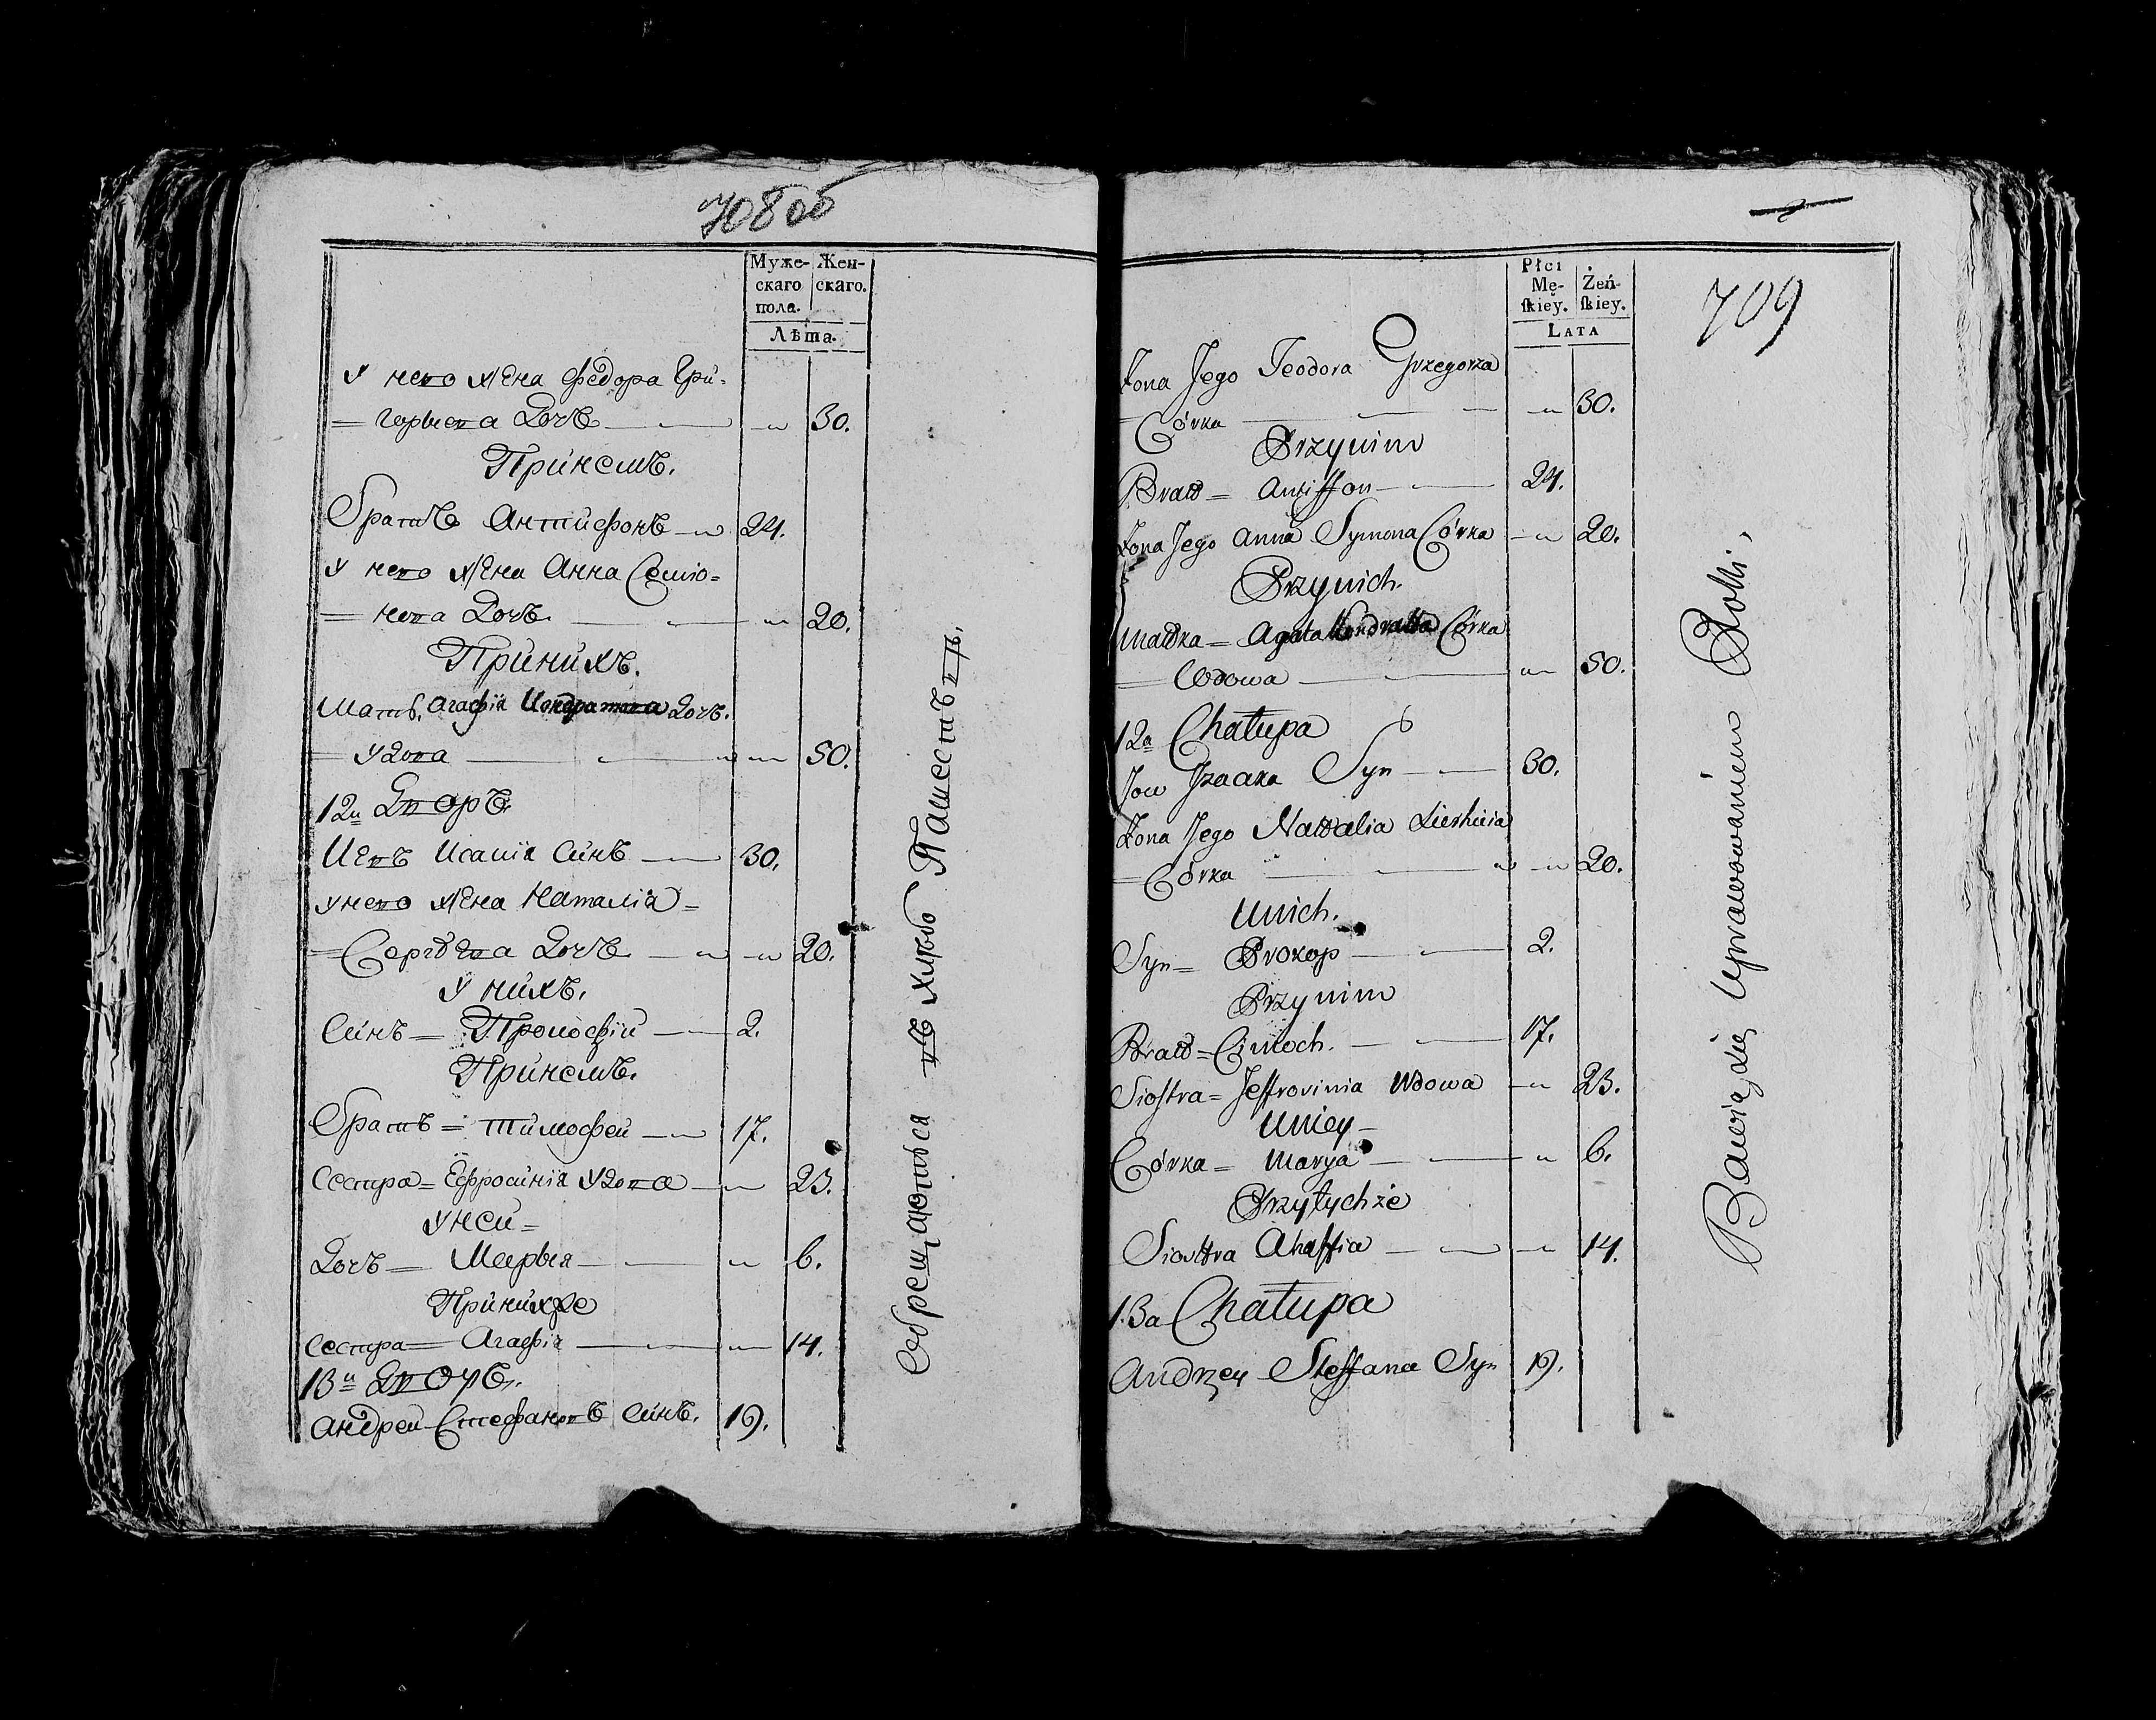 708 об
Муже-
скаго
пола.
Жен-
скаго.
Лѣта.
У него жена Федора Гри-
= горьева Дочь 30.
При немъ.
Братъ Антифонъ 24.
У него жена Анна Семio=
= нова Дочь 20.
При нихъ.
Мать, Агафiя Кондратова Дочь.
= удова 50.
12й Дворъ
Иевъ Исаиiя Синъ 30.
у него жена Наталiя =
= Сергѣева Дочь 20.
У нихъ.
Синъ = 2.
При немъ.
Братъ = Тимофей 17.
Сестра = Ефросинiя удова 23.
У ней =
Дочь = Марья 6.
При нихже
Сестра = Агафiя 14.
13й Дворъ.
Андрей Стефановъ Синъ. 19.
хлѣбо Пашествѣ.
709
Płci
Mę-
ſkiey.
Żeń-
ſkiey.
Lata
Żona Jego Teodora Grzegorza
= Córka 30.
Przynim
Bratt = Antiffon 24.
Żona Jego Anna Symona Córka 20.
Przynich.
Mattka = Agata Kondratta Córka
= Wdowa 50.
12a Chałupa
Jow Jzaaka Syn 30.
Żona Jego Nattalia Sierhieia
= Córka 20.
Unich.
Syn = Prokop 2.
Przynim
Bratt = Cimoch. 17.
Siostra = Jeffrosinia Wdowa 23.
Uniey =
Córka = Marya 6.
Przytychże
Siosttra Ahaffia 14.
13a Chałupa
Andrzey Steffana Syn 19.
Bawią się Uprawowaniem Rolli,